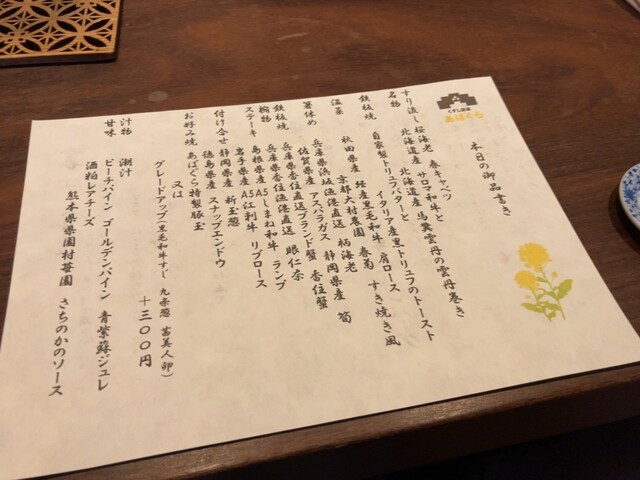 くずし鉄板
あばぐら
本日の御品書き
すり流し 桜海老 春キャベツ
名物 北海道産 サロマ和牛と
北海道産 馬糞雲丹の雲丹巻き
自家製トリュフバターと
イタリア産黒トリュフのトースト
鉄板焼 秋田県産 経産黒毛和牛 肩ロース
京都大村農園 春菊 すき焼き風
温菜 兵庫県浜坂漁港直送 柄海老
佐賀県産 アスパラガス 静岡県産 筍
箸休め 兵庫県香住漁港直送ブランド蟹 香住蟹
鉄板焼 兵庫県香住漁港直送 眼仁奈
椀物
ステーキ 島根県産A5しまね和牛 ランプ
岩手県産 A5江刺牛 リブロース
付け合せ 静岡県産 新玉葱
徳島県産 スナップエンドウ
お好み焼 あばぐら特製豚玉
又は
グレードアップ(黒毛和牛すじ 九条葱 苗美人卵)
+1300円
汁物 潮汁
甘味 ピーチパイン ゴールデンパイン 青紫蘇ジュレ
酒粕レアチーズ
熊本県県園村苺園 さちのかのソース